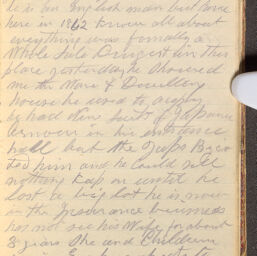 he is an English man but came
here in 1862 known all about
everything was formally a
Whole Sale Drugest in this
place yesterday he showed
me the Ware & Dwelling
house he used to occupy
had two suits of Japanese
armour in his entrance
hall but the Japs
him and he could sell
nothing until he
lost a big lot he is now
in the Insurance business
has not see his Wife for about
8 years She and Children
in